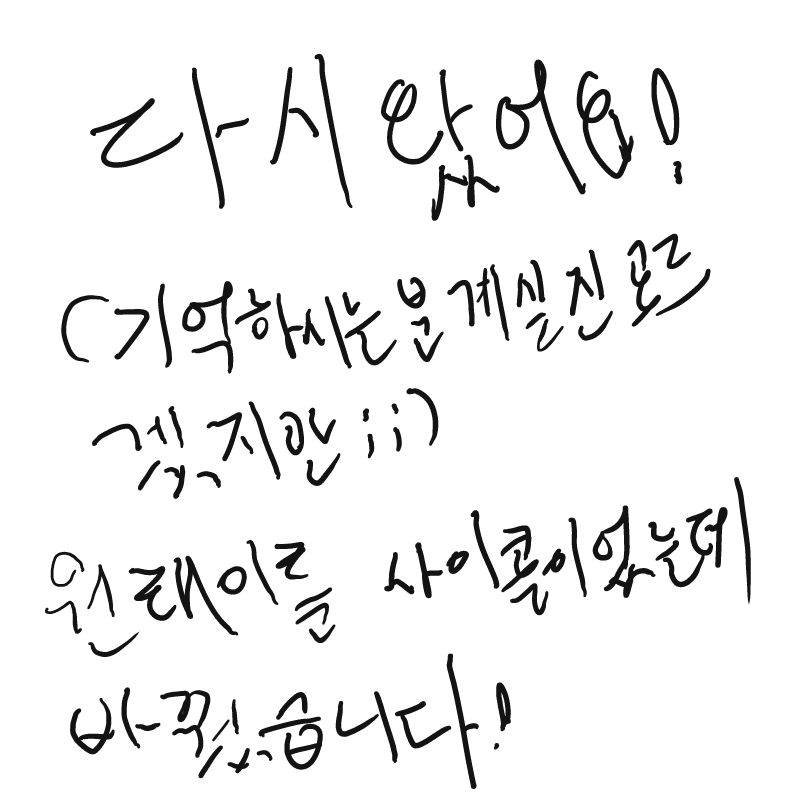 다시 왔어요!
(기억하시는 분 계실진 모르
겠지만;;)
원래 이름 사이콜이었는데
바꿨습니다!